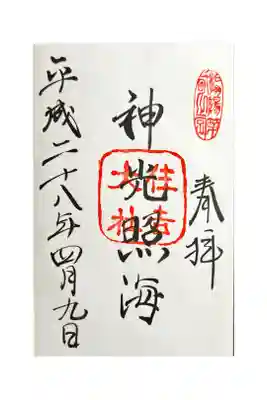 奉拝
神光照海
住吉
平成二十八年四月九日